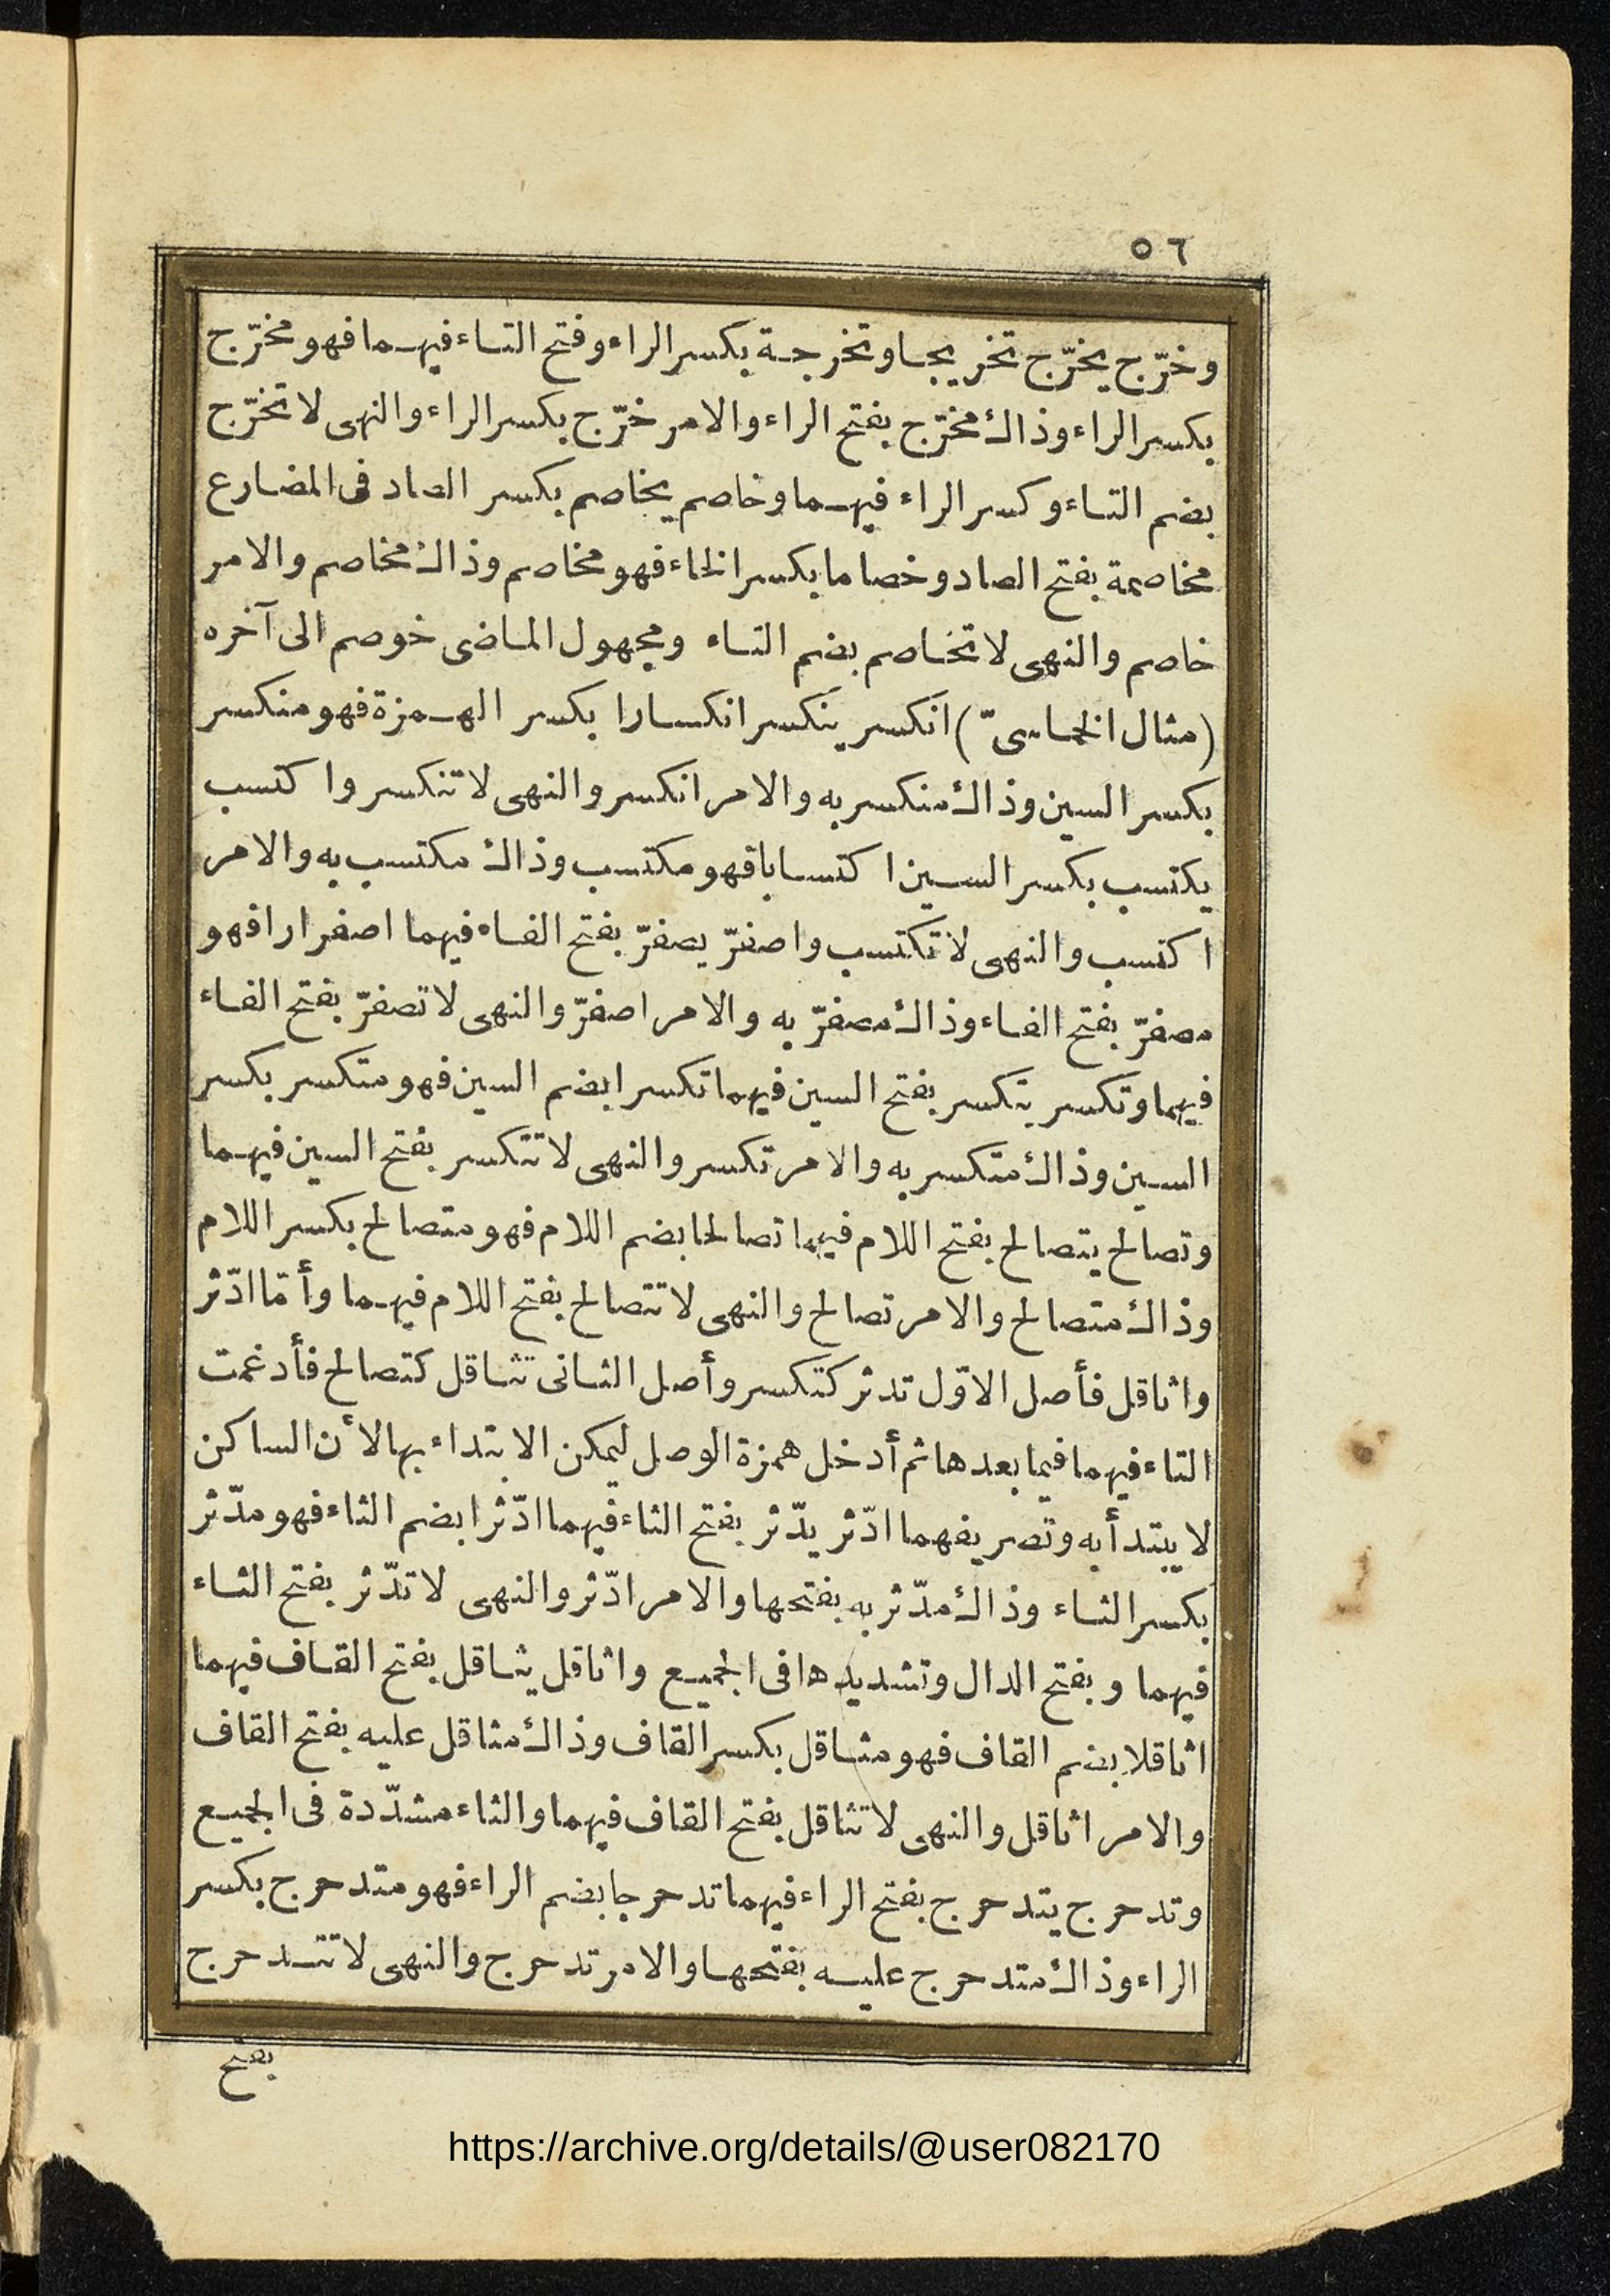 ٥٦
وخرّج يخرّج تخريجا وتخرجة بكسر الراء وفتح التاء فيهما فهو مخرّج
بكسر الراء وذاك مخرّج بفتح الراء والامر خرّج بكسر الراء والنهى لا تخرّج
بضم التاء وكسر الراء فيهما وخاصم يخاصم بكسر الصاد فى المضارع
مخاصمة بفتح الصاد وخصاما بكسر الخاء فهو مخاصم وذاك مخاصم والامر
خاصم والنهى لا تخاصم بضم التاء ومجهول الماضى خوصم الى آخره
(مثال الخماسىّ) انكسر ينكسر انكسارا بكسر الهمزة فهو منكسر
بكسر السين وذاك منكسر به والامر انكسر والنهى لا تنكسر واكتسب
يكتسب بكسر السين اكتسابا فهو مكتسب وذاك مكتسب به والامر
اكتسب والنهى لا تكتسب واصفرّ يصفرّ بفتح الفاء فيهما اصفرارا فهو
مصفرّ بفتح الفاء وذاك مصفرّ به والامر اصفرّ والنهى لا تصفرّ بفتح الفاء
فيهما وتكسر يتكسر بفتح السين فيهما تكسرا بضم السين فهو متكسر بكسر
السين وذاك متكسر به والامر تكسر والنهى لا تتكسر بفتح السين فيهما
وتصالح يتصالح بفتح اللام فيهما تصالحا بضم اللام فهو متصالح بكسر اللام
وذاك متصالح والامر تصالح والنهى لا تتصالح بفتح اللام فيهما وأمّا ادّثر
واثاقل فأصل الاوّل تدثر كتكسر وأصل الثانى تثاقل كتصالح فأدغمت
التاء فيهما فيما بعدها ثم أدخل همزة الوصل ليمكن الابتداء بها لأن الساكن
لا يبتدأ به وتصريفهما ادّثر يدّثر بفتح الثاء فيهما ادّثرا بضم الثاء فهو مدّثر
بكسر الثاء وذاك مدّثر به بفتحها والامر ادّثر والنهى لا تدّثر بفتح الثاء
فيهما وبفتح الدال وتشديدها فى الجميع واثاقل يثاقل بفتح القاف فيهما
اثاقلا بضم القاف فهو مثاقل بكسر القاف وذاك مثاقل عليه بفتح القاف
والامر اثاقل والنهى لا تثاقل بفتح القاف فيهما والثاء مشدّدة فى الجميع
وتدحرج يتدحرج بفتح الراء فيهما تدحرجا بضم الراء فهو متدحرج بكسر
الراء وذاك متدحرج عليه بفتحها والامر تدحرج والنهى لا تتدحرج
بفتح
https://archive.org/details/@user082170